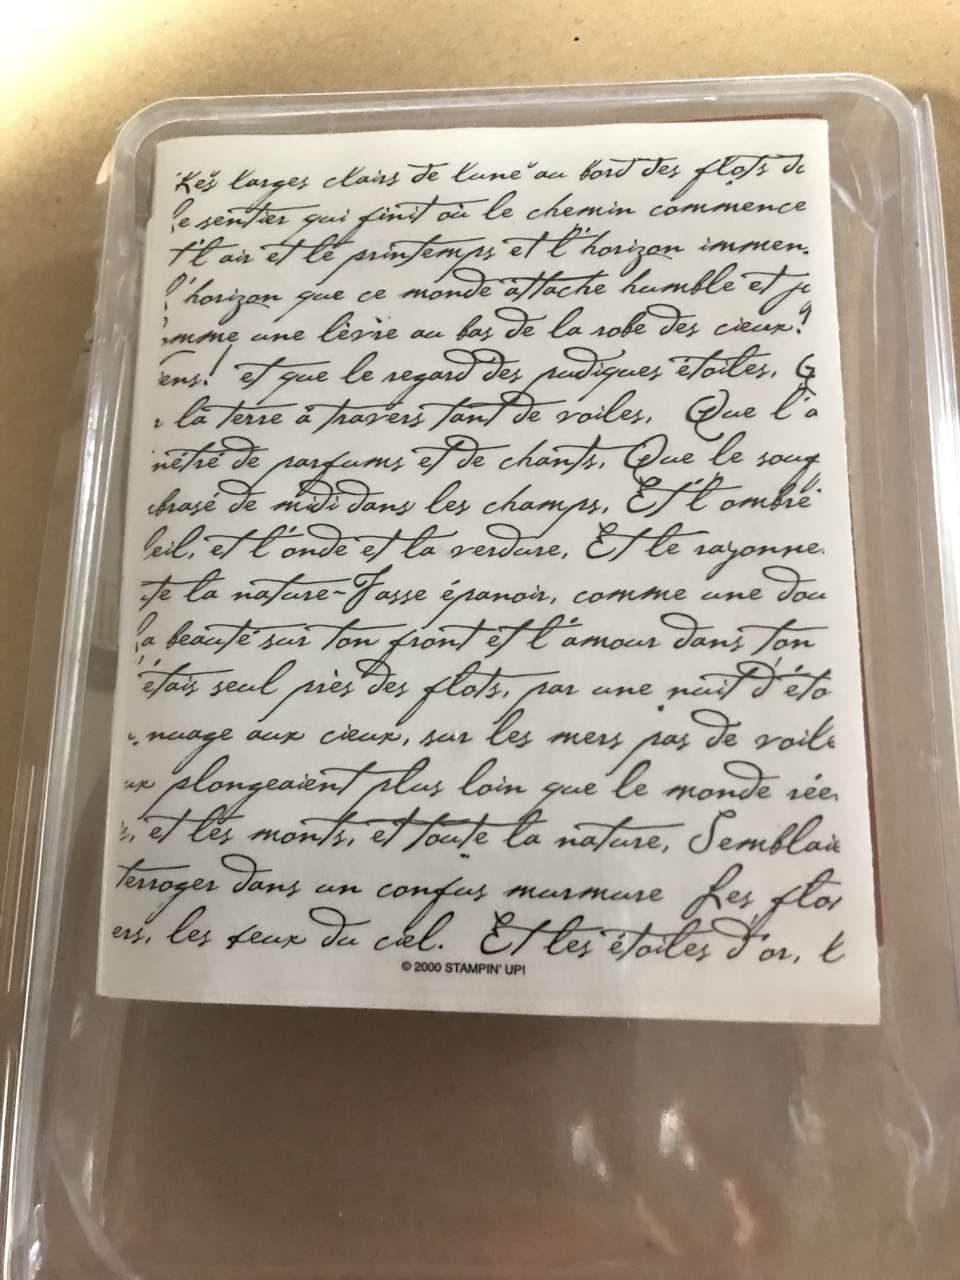 Les larges clairs de lune au bord des flots d
le sentier qui finit où le chemin commence
t l'air et le printemps et l'horizon immen
l'horizon que ce monde attache humble et jo
omme une lèvre au bas de la robe des cieux!
iens! et que le regard des pudiques étoiles, Q
la terre à travers tant de voiles, Que l'a
nétré de parfums et de chants, Que le souf
brasé de midi dans les champs, Et l'ombre
leil, et l'onde et la verdure, Et le rayonne
te la nature-Fasse épanoir, comme une dou
la beauté sur ton front et l'amour dans ton
'étais seul près des flots, par une nuit d'éto
nuage aux cieux, sur les mers pas de voile
ux plongeaient plus loin que le monde rée
s, et les monts, et toute la nature, Semblaie
terroger dans un confus murmure Les flo
ers, les feux du ciel. Et les étoiles d'or, l
© 2000 STAMPIN' UP!